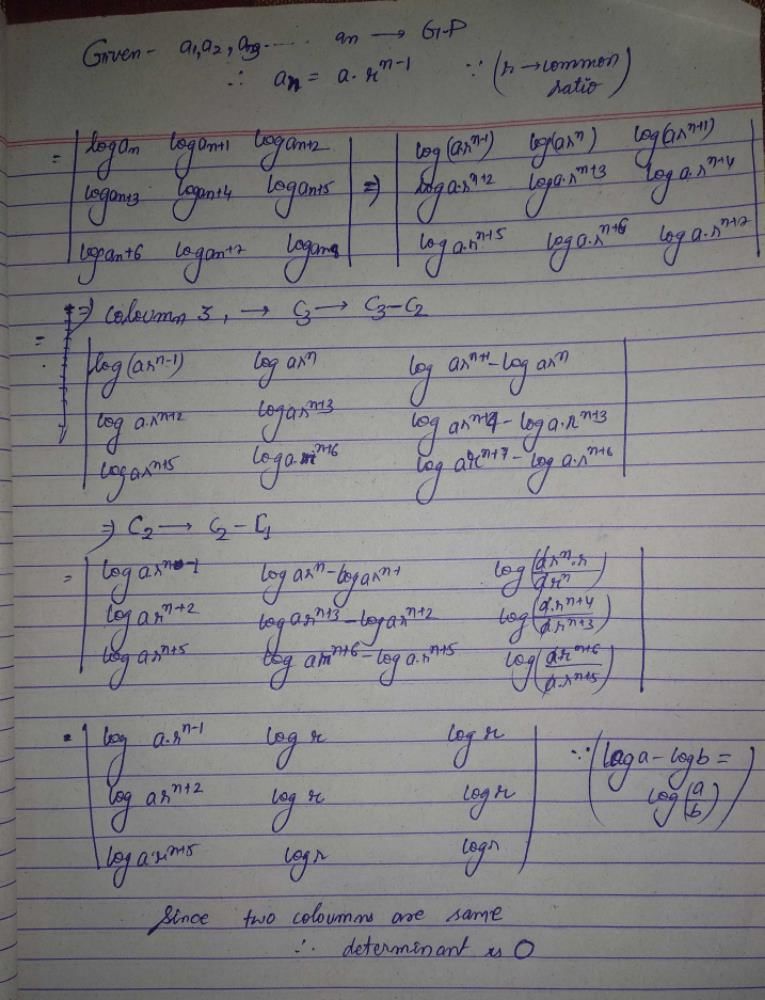 Given - a₁, a₂, a₃ ..... aₙ → G.P
∴ aₙ = a·rⁿ⁻¹ ∵ (r → common ratio)
= | log aₙ log aₙ₊₁ log aₙ₊₂ | ⇒ | log(arⁿ⁻¹) log(arⁿ) log(arⁿ⁺¹) |
| log aₙ₊₃ log aₙ₊₄ log aₙ₊₅ | | log a·rⁿ⁺² log a·rⁿ⁺³ log a·rⁿ⁺⁴ |
| log aₙ₊₆ log aₙ₊₇ log aₙ₊₈ | | log a·rⁿ⁺⁵ log a·rⁿ⁺⁶ log a·rⁿ⁺⁷ |
⇒ coloumn 3, → C₃ → C₃-C₂
= | log(arⁿ⁻¹) log arⁿ log arⁿ⁺¹ - log arⁿ |
| log a·rⁿ⁺² log arⁿ⁺³ log arⁿ⁺⁴ - log a·rⁿ⁺³ |
| log arⁿ⁺⁵ log a·rⁿ⁺⁶ log arⁿ⁺⁷ - log a·rⁿ⁺⁶ |
⇒ C₂ → C₂ - C₁
= | log arⁿ⁻¹ log arⁿ - log arⁿ⁺ log(arⁿ·r/arⁿ) |
| log arⁿ⁺² log arⁿ⁺³ - log arⁿ⁺² log(a·rⁿ⁺⁴/a·rⁿ⁺³) |
| log arⁿ⁺⁵ log arⁿ⁺⁶ - log a·rⁿ⁺⁵ log(arⁿ⁺⁶/a·rⁿ⁺⁵) |
= | log a·rⁿ⁻¹ log r log r | ∵ (log a - log b =
| log arⁿ⁺² log r log r | log(a/b))
| log a·rⁿ⁺⁵ log r log r |
Since two coloumns are same
∴ determinant is 0